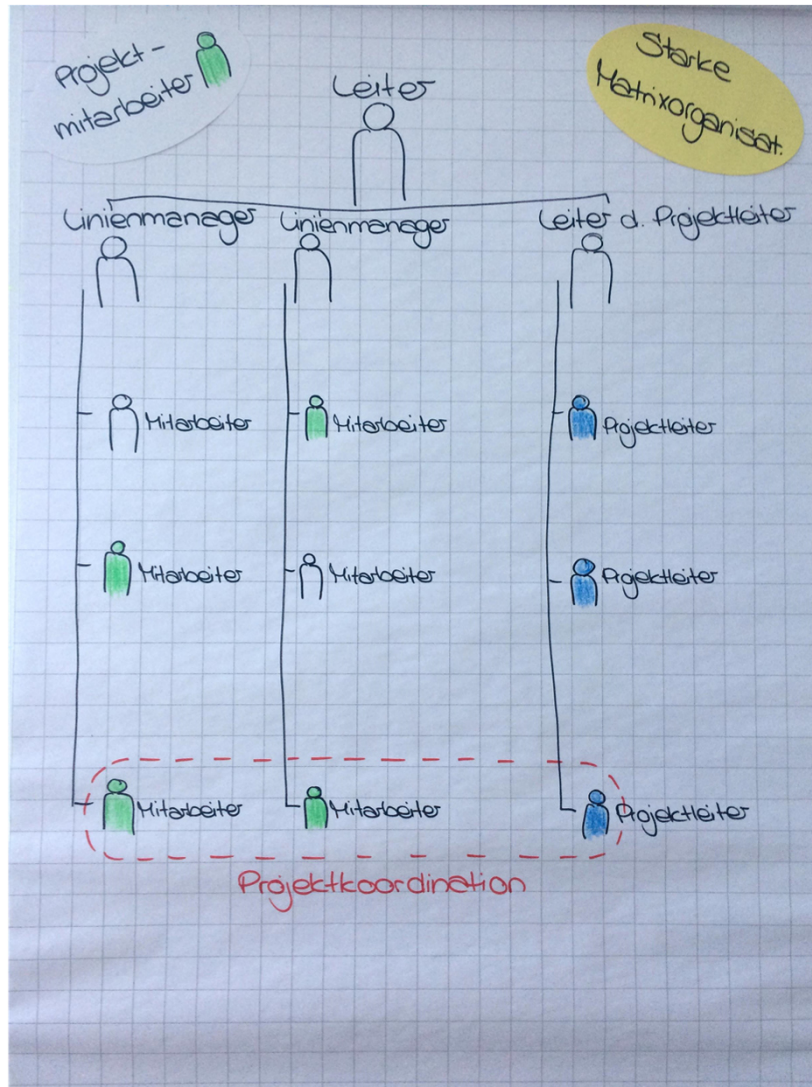 Projekt-
mitarbeiter
Starke
Matrixorganisat.
Leiter
Linienmanager Linienmanager Leiter d. Projektleiter
Mitarbeiter Mitarbeiter Projektleiter
Mitarbeiter Mitarbeiter Projektleiter
Mitarbeiter Mitarbeiter Projektleiter
Projektkoordination